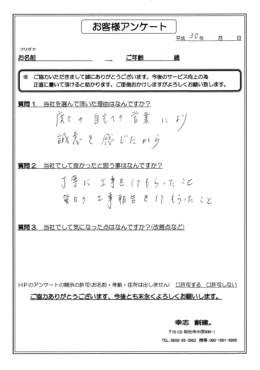 お客様アンケート
平成 30 年 月 日
フリガナ
お名前 ご年齢 歳
※ ご協力いただきまして誠にありがとうございます。今後のサービス向上の為
正直に書いて頂けると助かります。ご面倒おかけしますがよろしくお願い致します。
質問1. 当社を選んで頂いた理由はなんですか?
度々の自宅への営業により
誠意を感じたから
質問2. 当社でして良かったと思う事はなんですか?
丁寧に工事をしてもらったこと
毎日の工事報告をしてもらったこと
質問3. 当社でして気になった点はなんですか?(改善点など)
HPのアンケートの開示の許可(お名前・年齢・住所は出しません) □許可する □許可しない
ご協力ありがとうございます。今後とも末永くよろしくお願いします。
幸志 創建。